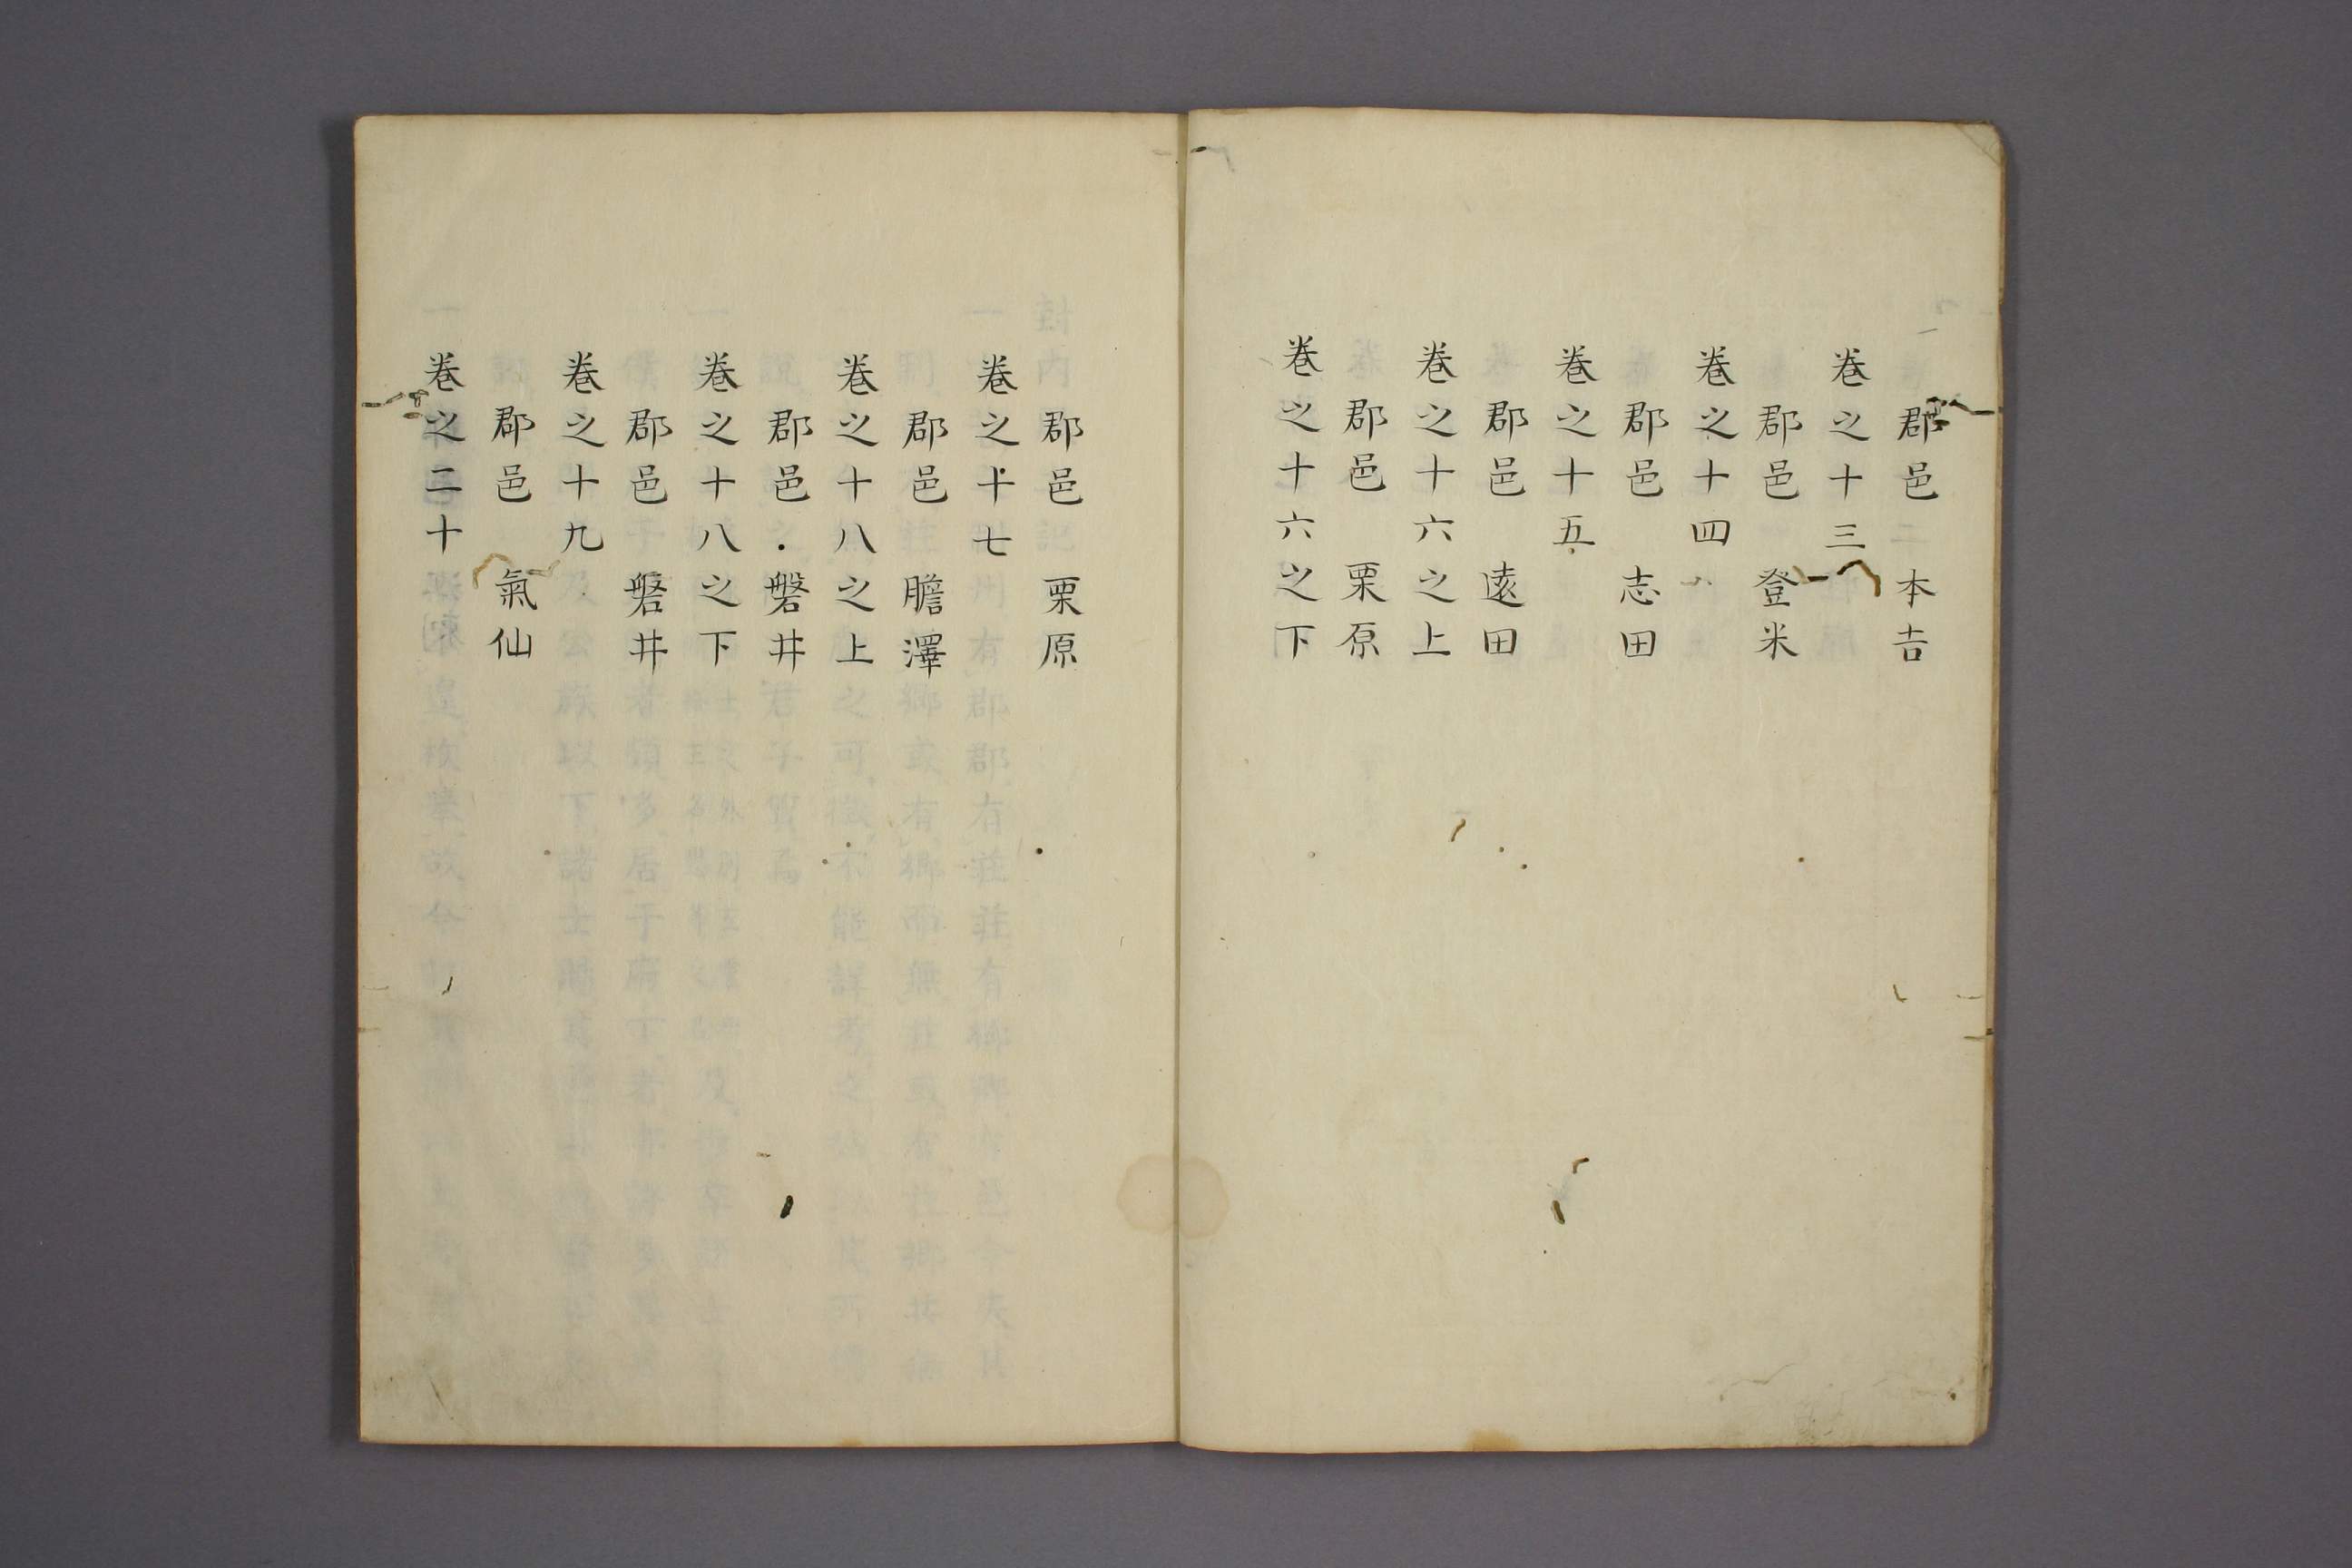 郡邑　本吉
巻之十三
郡邑　登米
巻之十四
郡邑　志田
巻之十五
郡邑　遠田
巻之十六之上
郡邑　栗原
巻之十六之下
郡邑　栗原
巻之十七
郡邑　膽澤
巻之十八之上
郡邑　磐井
巻之十八之下
郡邑　磐井
巻之十九
郡邑　氣仙
巻之二十